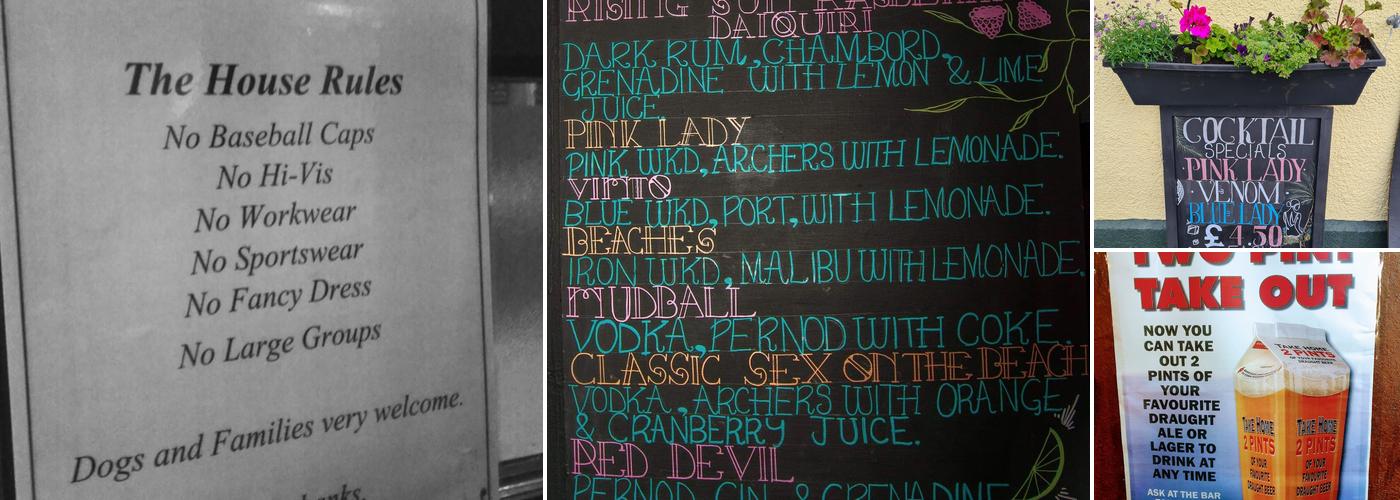 The House Rules
No Baseball Caps
No Hi-Vis
No Workwear
No Sportswear
No Fancy Dress
No Large Groups
Dogs and Families very welcome.
RISING SUN RASPBERRY
DAIQUIRI
DARK RUM, CHAMBORD,
GRENADINE WITH LEMON & LIME
JUICE.
PINK LADY
PINK WKD, ARCHERS WITH LEMONADE.
VIMTO
BLUE WKD, PORT, WITH LEMONADE.
BEACHES
IRON WKD, MALIBU WITH LEMONADE.
MUDBALL
VODKA, PERNOD WITH COKE.
CLASSIC SEX ON THE BEACH
VODKA, ARCHERS WITH ORANGE
& CRANBERRY JUICE.
RED DEVIL
PERNOD, GIN, & GRENADINE
COCKTAIL
SPECIALS
PINK LADY
VENOM
BLUE LADY
£4.50
TWO PINT
TAKE OUT
NOW YOU
CAN TAKE
OUT 2
PINTS OF
YOUR
FAVOURITE
DRAUGHT
ALE OR
LAGER TO
DRINK AT
ANY TIME
ASK AT THE BAR
TAKE HOME
2 PINTS
OF YOUR FAVOURITE
DRAUGHT BEER
TAKE HOME
2 PINTS
OF YOUR
FAVOURITE
DRAUGHT BEER
TAKE HOME
2 PINTS
OF YOUR
FAVOURITE
DRAUGHT BEER